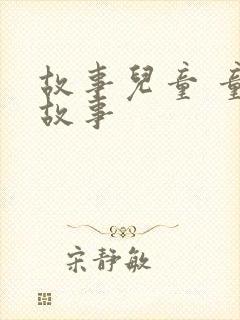 故事兒童 童
故事
宋靜敏